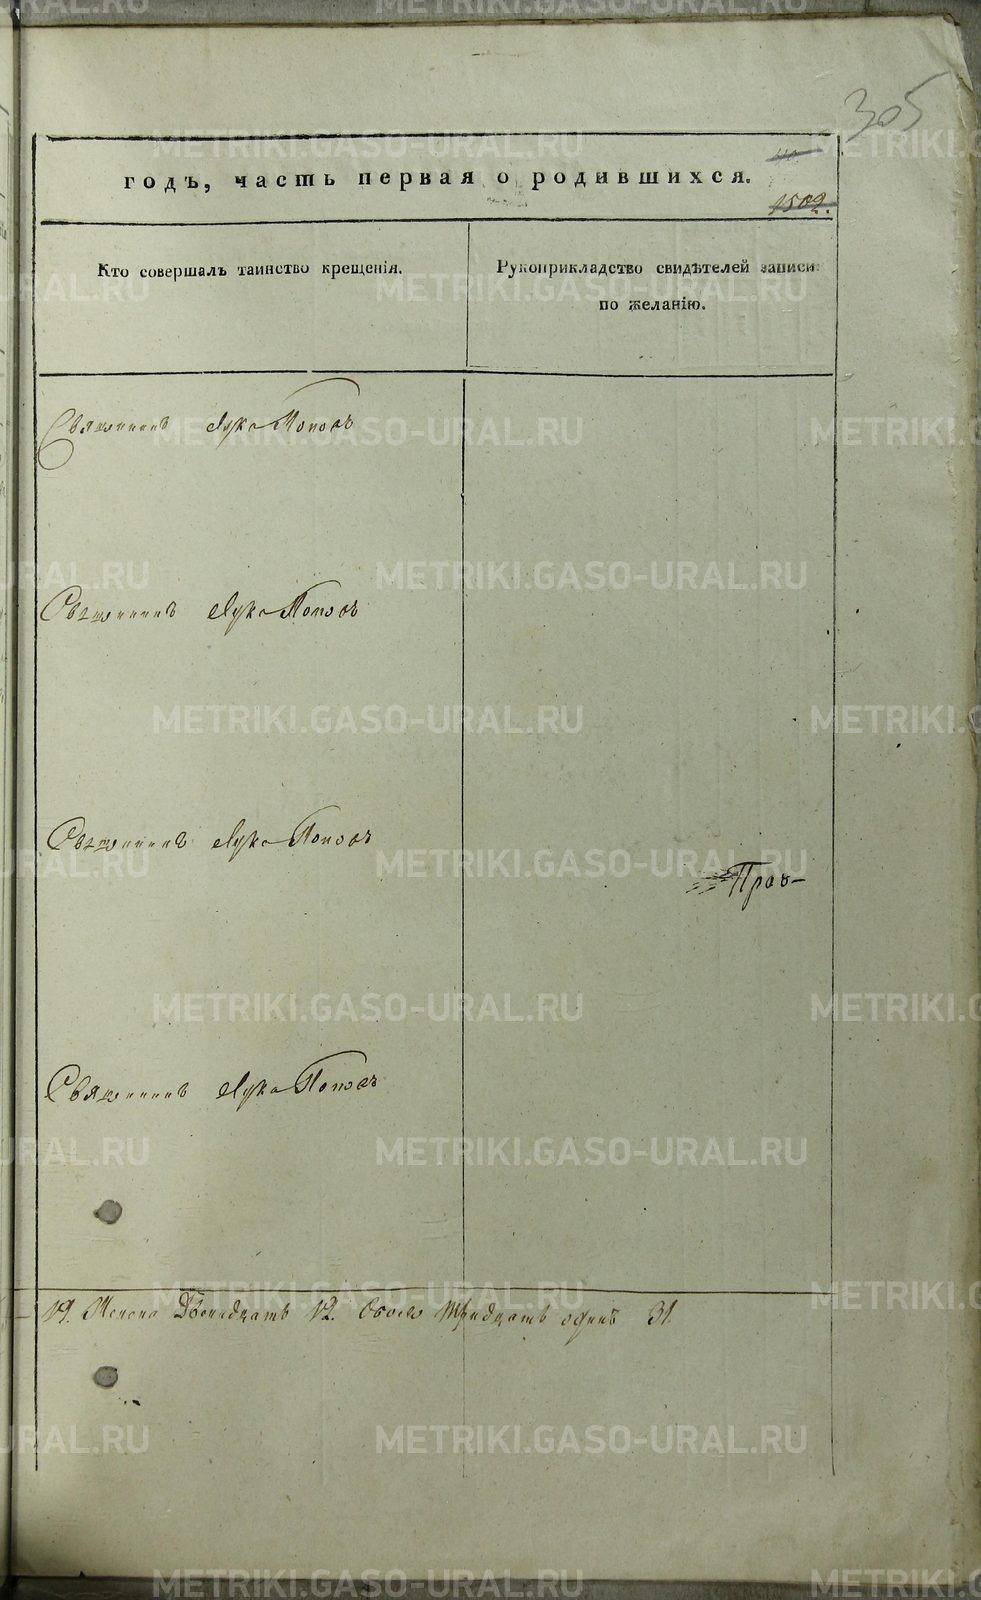 305
годъ, часть первая о родившихся.
1502.
Кто совершалъ таинство крещенія.
Рукоприкладство свидѣтелей записи
по желанію.
Священникъ Лука Поповъ
Священникъ Лука Поповъ
Священникъ Лука Поповъ
Прав-
Священникъ Лука Поповъ
19. Женска Двенадцать 12. Обоего Тридцать одинъ 31.
METRIKI.GASO-URAL.RU